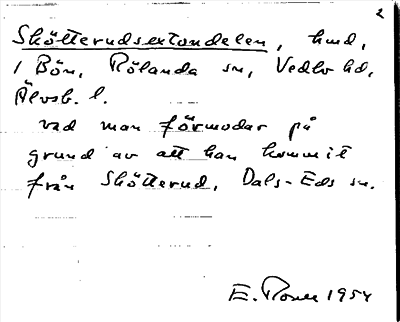 2
Skötterudsextondelen, hmd,
i Bön, Rölanda sn, Vedbo hd,
Älvsb. l.
vad man förmodar på
grund av att han kommit
från Skötterud, Dals-Eds sn.
E. 1954